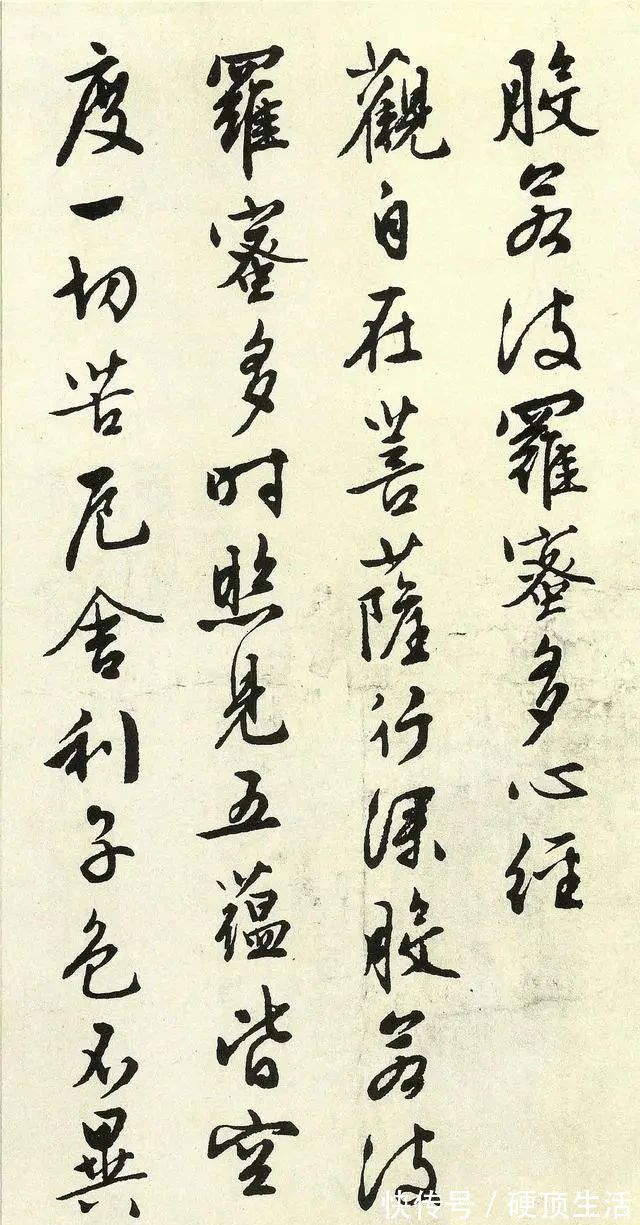 般若波羅蜜多心經
觀自在菩薩行深般若波
羅蜜多時照見五蘊皆空
度一切苦厄舍利子色不異
快传号／硬顶生活